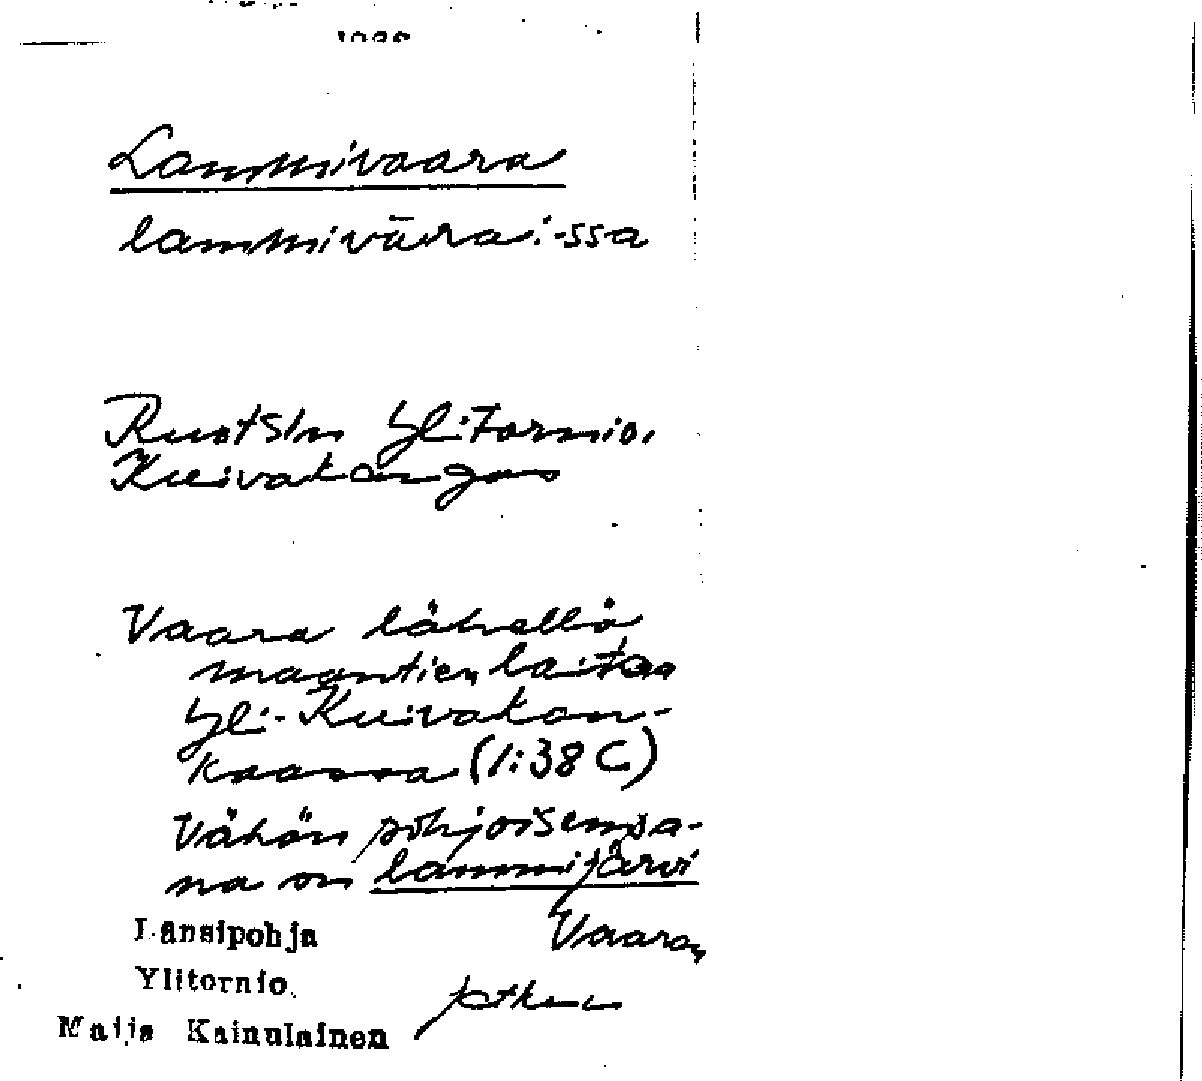 Lammivaara
lammivāra: -ssa
Ruotsin Ylitornio.
Kuivakangas
Vaara lähellä
maantien laitaa
Yli-Kuivakan-
kaassa (1:38 C)
Vähän pohjoisempa-
na on lammijärvi
Länsipohja
Vaaran
Ylitornio.
jatkuu
Maija Kainulainen